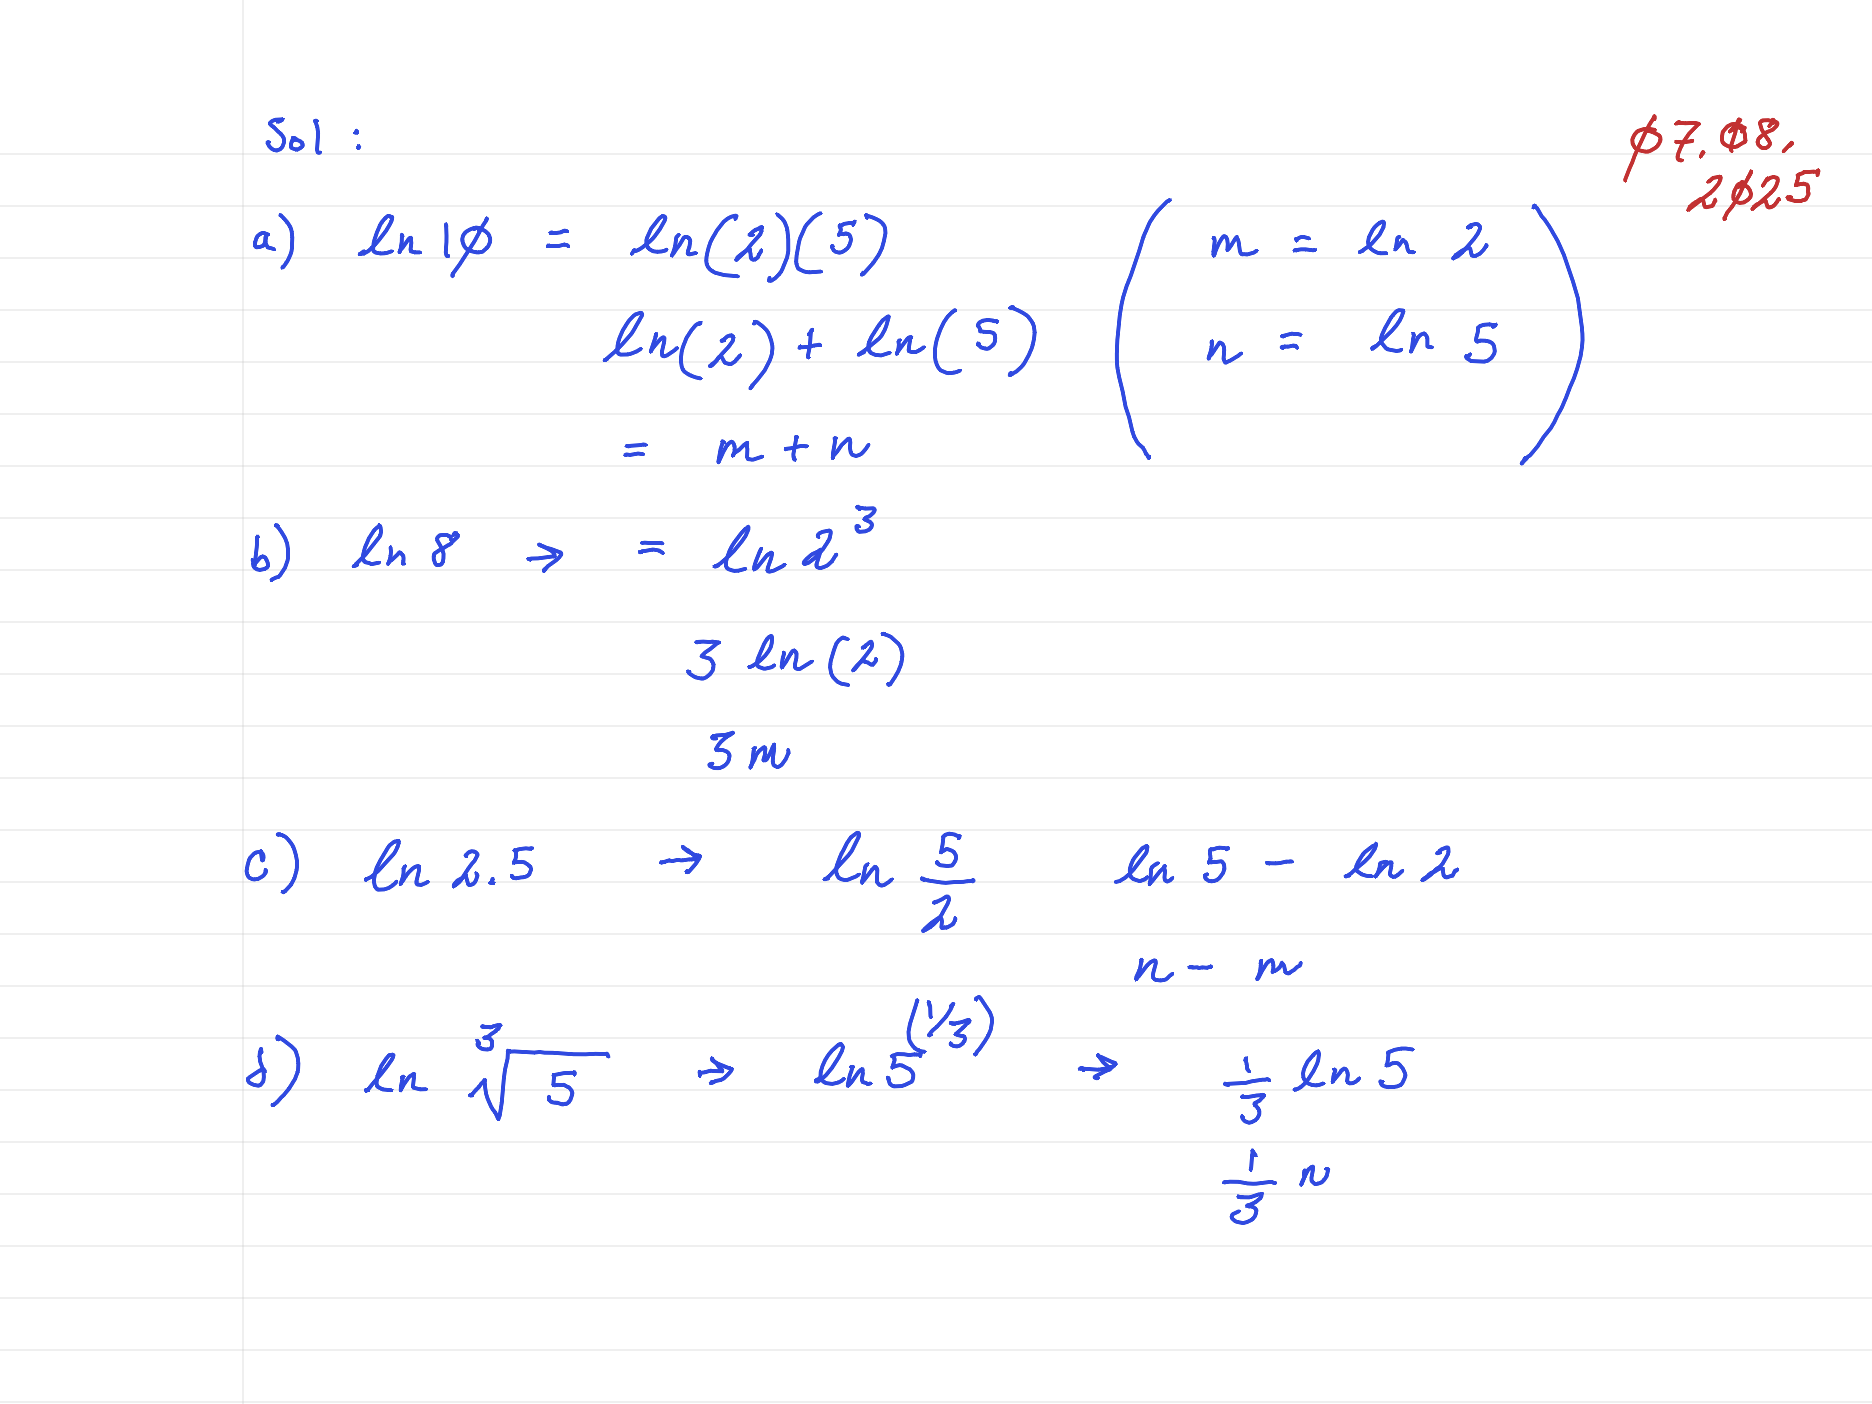 Sol :
ø7.ø8.
2ø25
a) ln 1ø = ln(2)(5)
ln(2) + ln(5)
= m + n
( m = ln 2
n = ln 5 )
b) ln 8 → = ln 2³
3 ln (2)
3m
c) ln 2.5 → ln 5/2 ln 5 - ln 2
n - m
d) ln ³√5 → ln 5^(1/3) → 1/3 ln 5
1/3 n